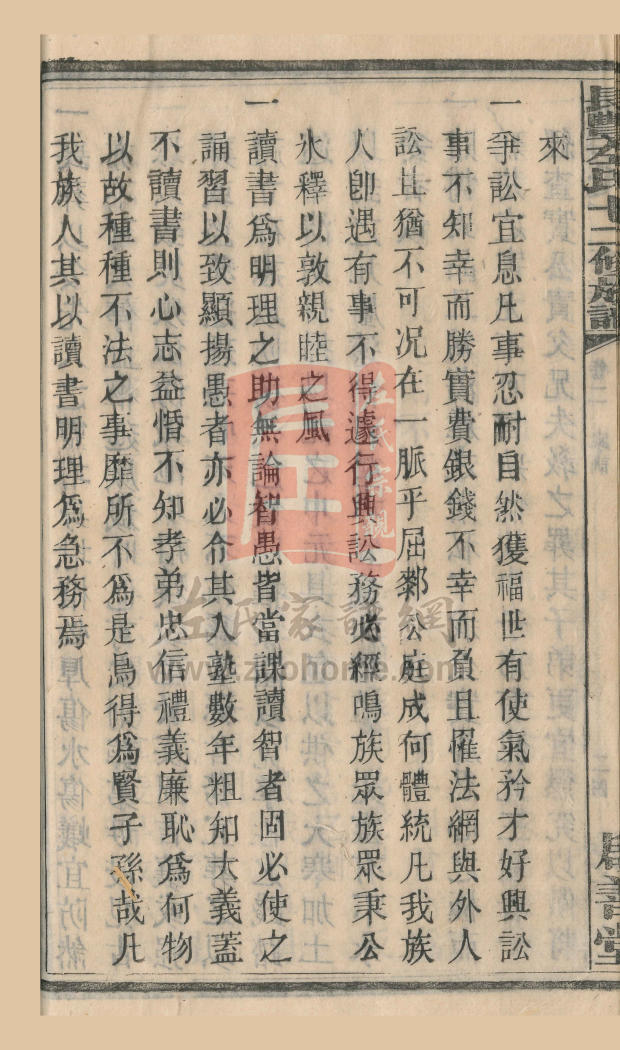 長豐左氏十二修族譜
卷二
二四
居善堂
來
一爭訟宜息凡事忍耐自然獲福世有使氣矜才好興訟
事不知幸而勝實費銀錢不幸而負且罹法網與外人
訟且猶不可况在一脈乎屈鄰公庭成何體統凡我族
人卽遇有事不得遽行興訟務必經鳴族眾族眾秉公
氷釋以敦親睦之風
一讀書爲明理之助無論智愚皆當課讀智者固必使之
誦習以致顯揚愚者亦必令其入塾數年粗知大義蓋
不讀書則心志益惛不知孝弟忠信禮義廉恥爲何物
以故種種不法之事靡所不爲是烏得爲賢子孫哉凡
我族人其以讀書明理爲急務焉
左氏宗親
左氏家譜網
www.zuohome.com